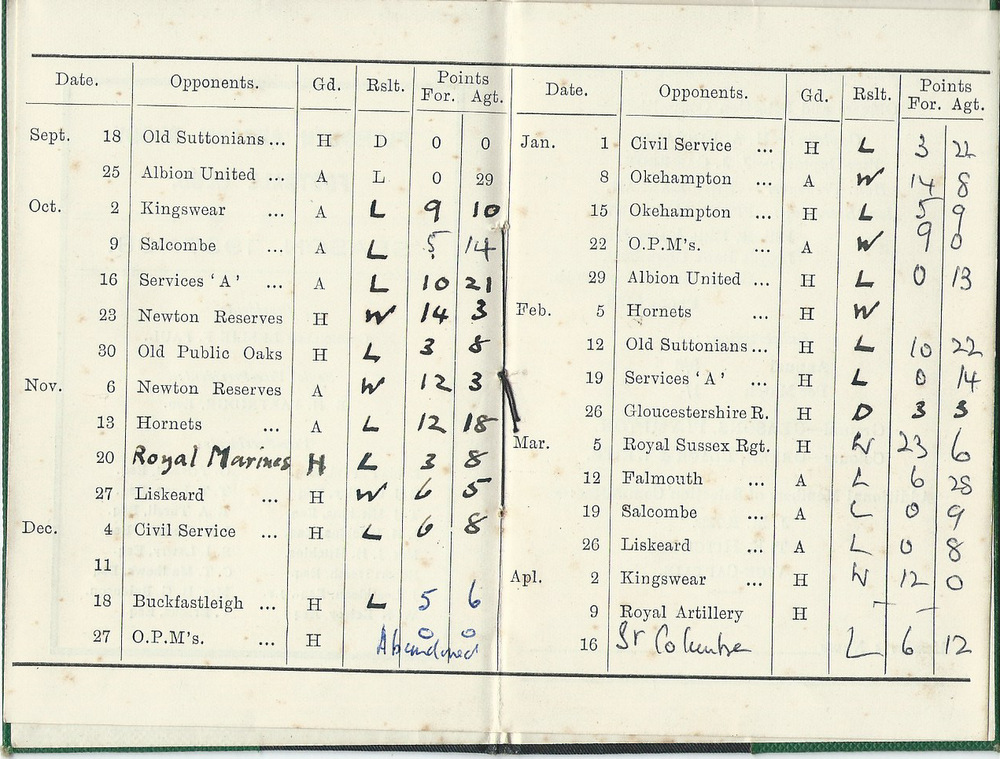 Date. Opponents. Gd. Rslt. Points For. Agt.
Sept. 18 Old Suttonians ... H D 0 0
25 Albion United ... A L 0 29
Oct. 2 Kingswear ... A L 9 10
9 Salcombe ... A L 5 14
16 Services 'A' ... A L 10 21
23 Newton Reserves H W 14 3
30 Old Public Oaks H L 3 8
Nov. 6 Newton Reserves A W 12 3
13 Hornets ... A L 12 18
20 Royal Marines H L 3 8
27 Liskeard ... H W 6 5
Dec. 4 Civil Service ... H L 6 8
11
18 Buckfastleigh ... H L 5 6
27 O.P.M's. ... H 0 0
Abandoned
Date. Opponents. Gd. Rslt. Points For. Agt.
Jan. 1 Civil Service ... H L 3 22
8 Okehampton ... A W 14 8
15 Okehampton ... H L 5 9
22 O.P.M's. ... A W 9 0
29 Albion United ... H L 0 13
Feb. 5 Hornets ... H W
12 Old Suttonians ... H L 10 22
19 Services 'A' ... H L 0 14
26 Gloucestershire R. H D 3 3
Mar. 5 Royal Sussex Rgt. H W 23 6
12 Falmouth ... A L 6 28
19 Salcombe ... A L 0 9
26 Liskeard ... A L 0 8
Apl. 2 Kingswear ... H W 12 0
9 Royal Artillery H — —
16 St Columba L 6 12